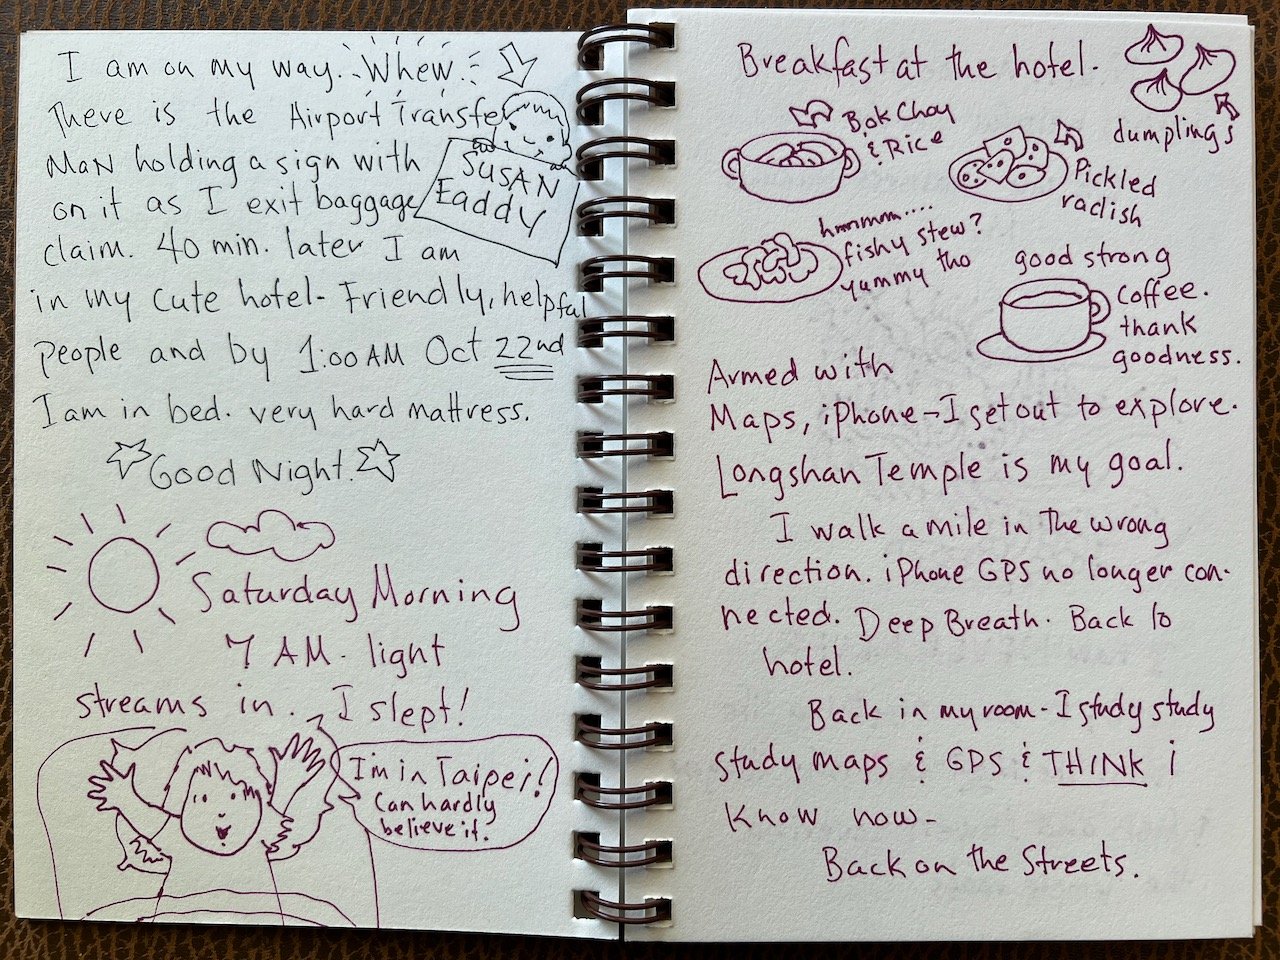 I am on my way. Whew.
There is the Airport Transfer
MAN holding a sign with
on it as I exit baggage
SUSAN
Eaddy
claim. 40 min. later I am
in my cute hotel- Friendly, helpful
people and by 1:00 AM Oct 22nd
I am in bed. very hard mattress.
Good Night!
Saturday Morning
7 AM. light
streams in. I slept!
I'm in Taipei!
Can hardly
believe it.
Breakfast at the hotel.
dumplings
Bok Choy
& Rice
Pickled
radish
hmmmm....
fishy stew?
yummy tho
good strong
coffee.
thank
goodness.
Armed with
Maps, iPhone-I set out to explore.
Longshan Temple is my goal.
I walk a mile in the wrong
direction. iPhone GPS no longer con-
nected. Deep Breath. Back to
hotel.
Back in my room-I study study
study maps & GPS & THINK i
know now-
Back on the Streets.